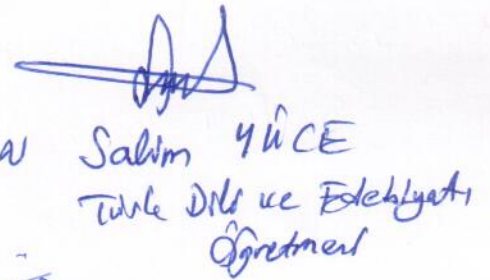 Salim YÜCE
Türk Dili ve Edebiyatı
Öğretmeni